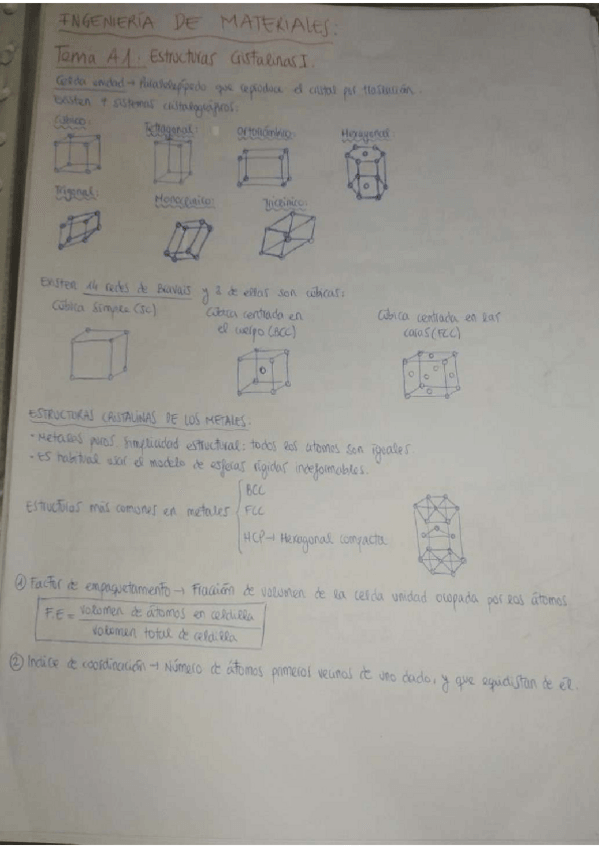 INGENIERÍA DE MATERIALES:
Tema A1: Estructuras Cistalinas I.
Celda unidad → Paralelepípedo que reproduce el cristal por traslación.
Existen 7 sistemas cristalográficos:
Cúbico: Tetragonal: Ortorrómbico: Hexagonal:
Trigonal: Monoclínico: Triclínico:
Existen 14 redes de Bravais y 3 de ellas son cúbicas:
Cúbica Simple (SC) Cúbica centrada en el cuerpo (BCC) Cúbica centrada en las caras (FCC)
ESTRUCTURAS CRISTALINAS DE LOS METALES:
- Metales puros simplicidad estructural: todos los átomos son iguales
- Es habitual usar el modelo de esferas rígidas indeformables.
BCC
Estructuras más comunes en metales FCC
HCP → Hexagonal compacta
① Factor de empaquetamiento → Fracción de volumen de la celda unidad ocupada por los átomos
F.E = volumen de átomos en celdilla
volumen total de celdilla
② Indice de coordinación → Número de átomos primeros vecinos de uno dado, y que equidistan de él.